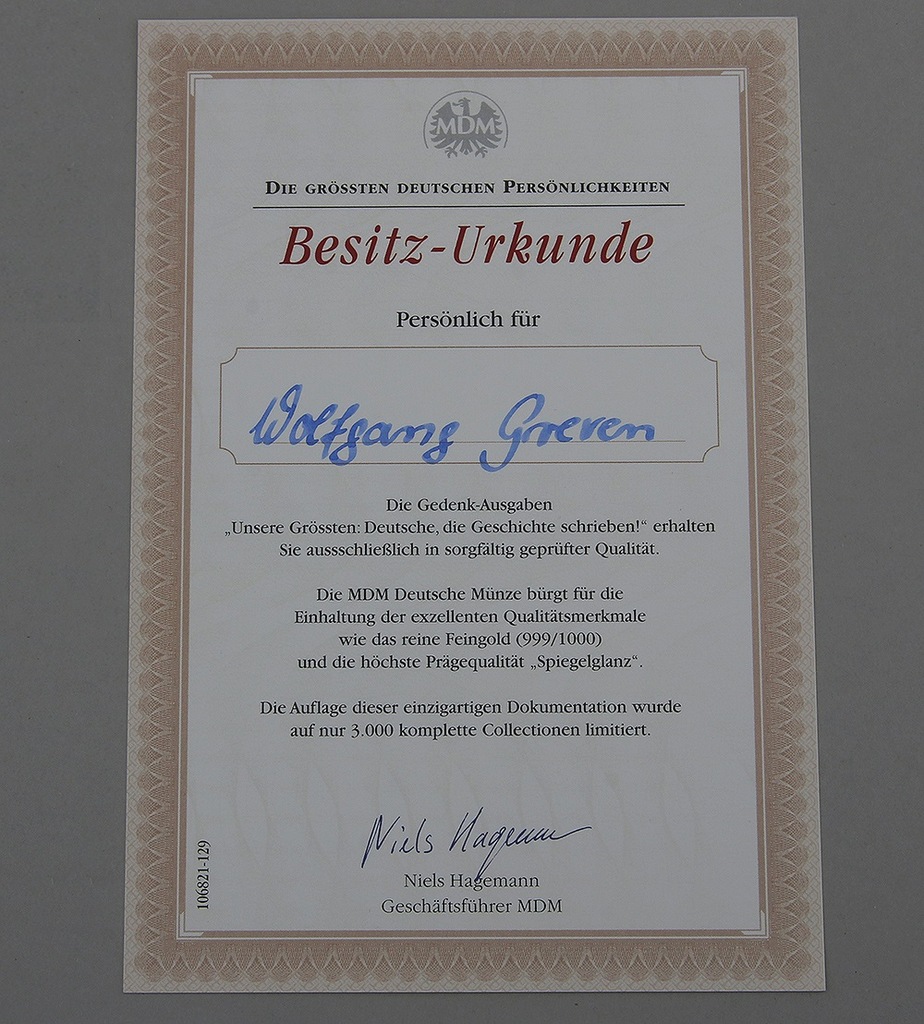 MDM
DIE GRÖSSTEN DEUTSCHEN PERSÖNLICHKEITEN
Besitz-Urkunde
Persönlich für
Wolfgang Greven
Die Gedenk-Ausgaben
„Unsere Grössten: Deutsche, die Geschichte schrieben!“ erhalten
Sie aussschließlich in sorgfältig geprüfter Qualität.
Die MDM Deutsche Münze bürgt für die
Einhaltung der exzellenten Qualitätsmerkmale
wie das reine Feingold (999/1000)
und die höchste Prägequalität „Spiegelglanz“.
Die Auflage dieser einzigartigen Dokumentation wurde
auf nur 3.000 komplette Collectionen limitiert.
Niels Hagemann
Niels Hagemann
Geschäftsführer MDM
106821-129